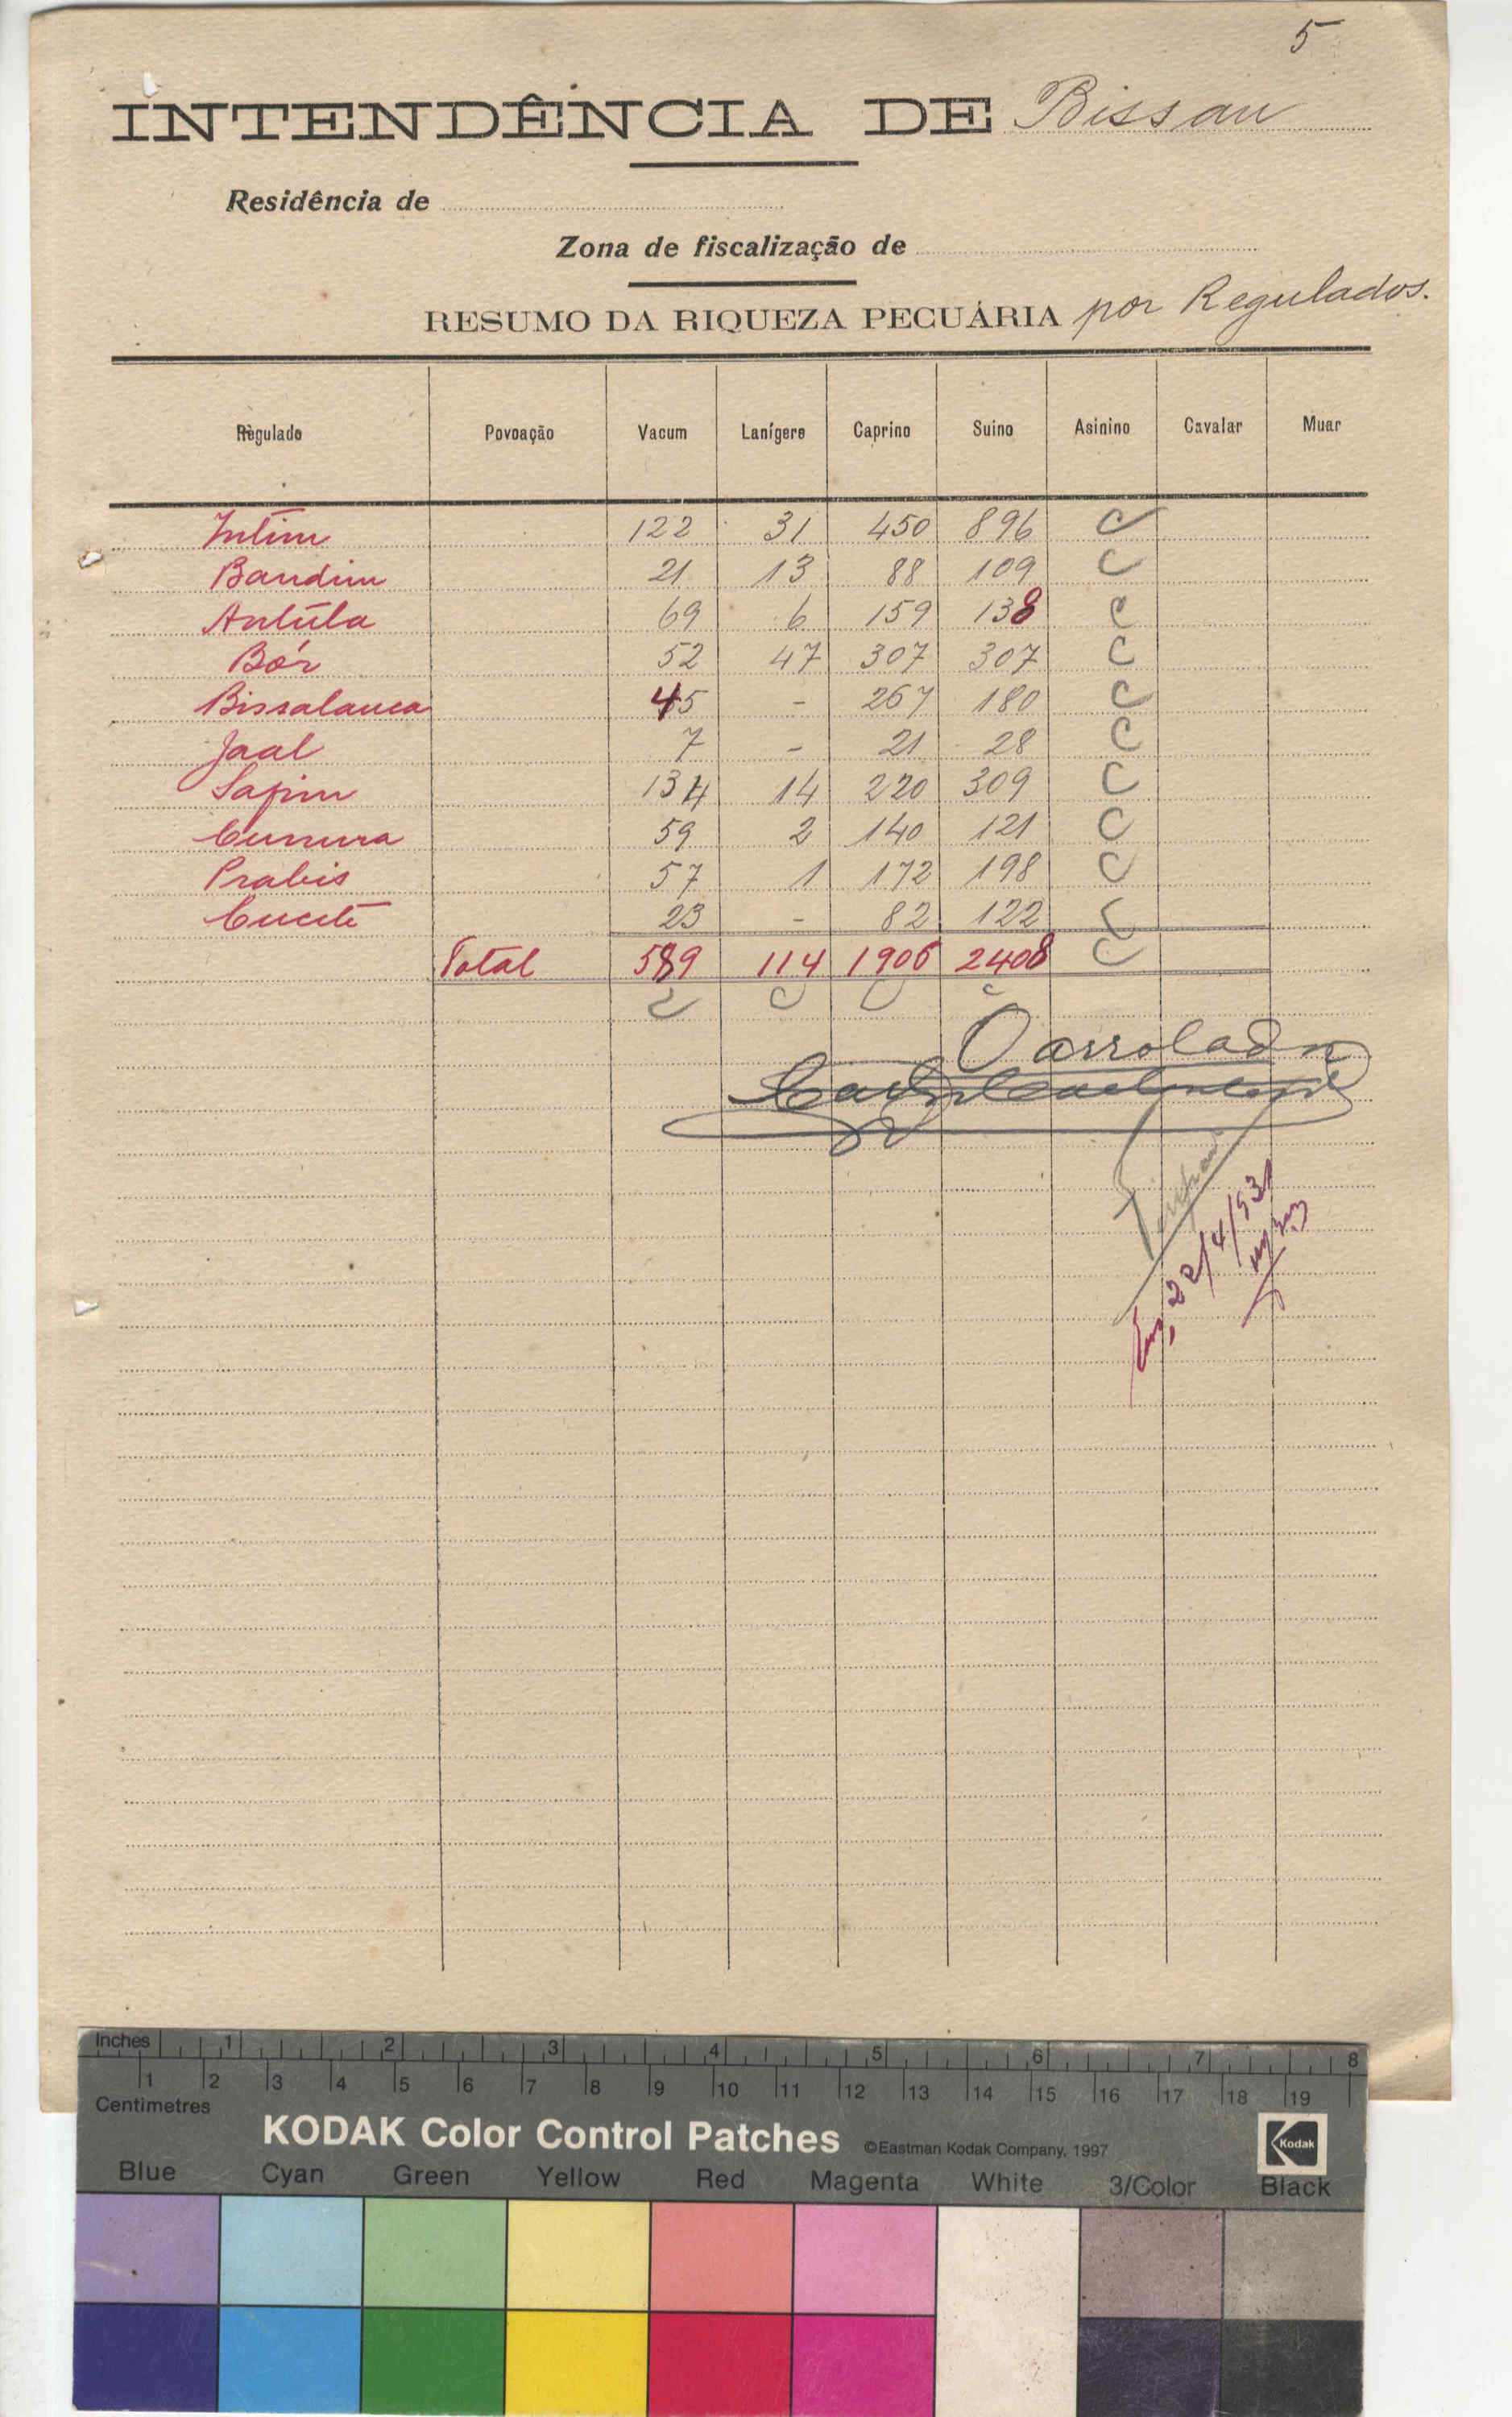 5
INTENDÊNCIA DE Bissau
Residência de
Zona de fiscalização de
RESUMO DA RIQUEZA PECUÁRIA por Regulados.
Règulado Povoação Vacum Lanígero Caprino Suino Asinino Cavalar Muar
Intim 122 31 450 896
Bandim 21 13 88 109
Antúla 69 6 159 138
Bór 52 47 307 307
Bissalanca 45 - 267 180
Jaal 7 - 21 28
Safim 134 14 220 309
Cumura 59 2 140 121
Prabis 57 1 172 198
Cucetê 23 - 82 122
Total 589 114 1906 2408
O arrolador
Em, 22/4/931
Inches 1 2 3 4 5 6 7 8
1 2 3 4 5 6 7 8 9 10 11 12 13 14 15 16 17 18 19
Centimetres
KODAK Color Control Patches ©Eastman Kodak Company, 1997 Kodak
Blue Cyan Green Yellow Red Magenta White 3/Color Black